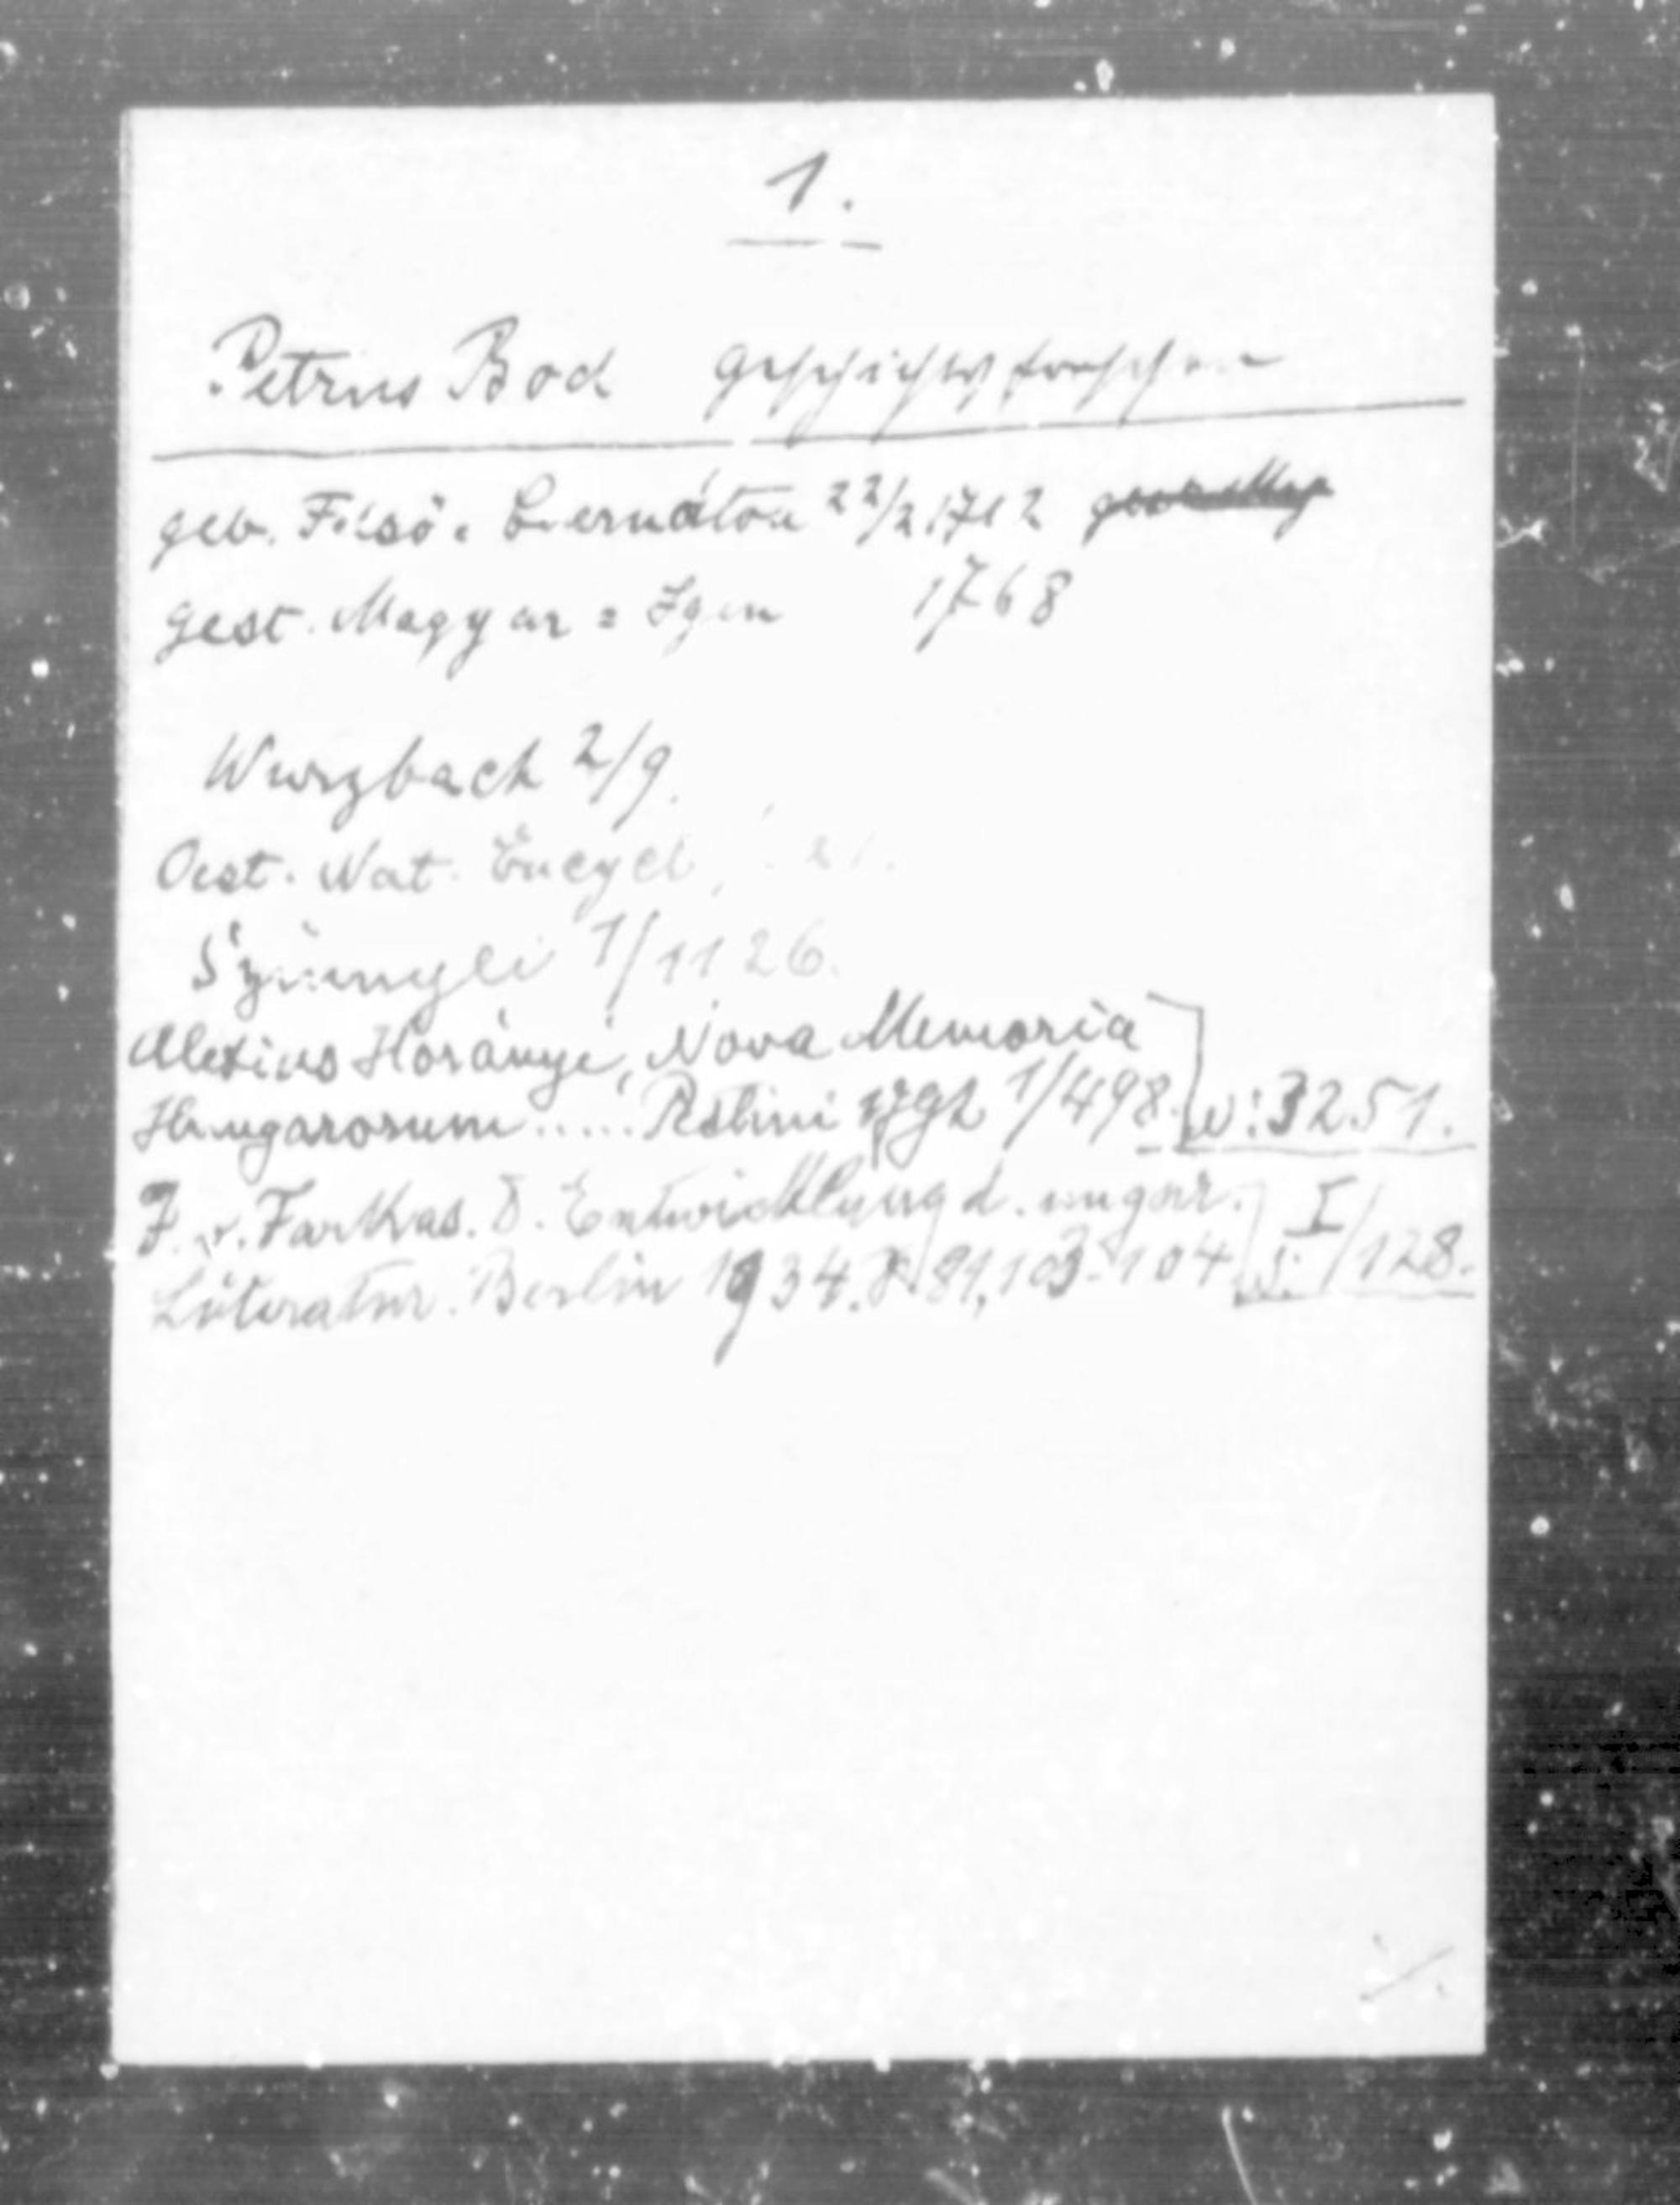 1.
Petrus Bod Geschichtsforscher
geb. Felsö-Csernáton 22/2 1712
gest. Magyar=Igen 1768
Wurzbach 2/9.
Oest. Nat. Encycl
Szinnyei 1/1126.
Alexius Horányi, Nova Memoria
Hungarorum ..... Pestini 1792 1/498. v: 3251.
J. v. Farkas. D. Entwicklung d. ungar. I
Literatur. Berlin 1934. S. 81, 103-104 s: /128.